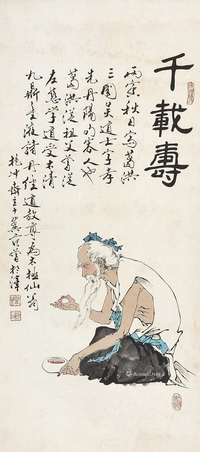 千載壽
丙寅秋日寫葛洪
三國吳道士字孝
先丹陽句容人也
葛洪從祖父曾從
左慈學道受太清
九鼎金液諸丹經道教尊為太極仙翁
抱沖齋主十翼范曾於津